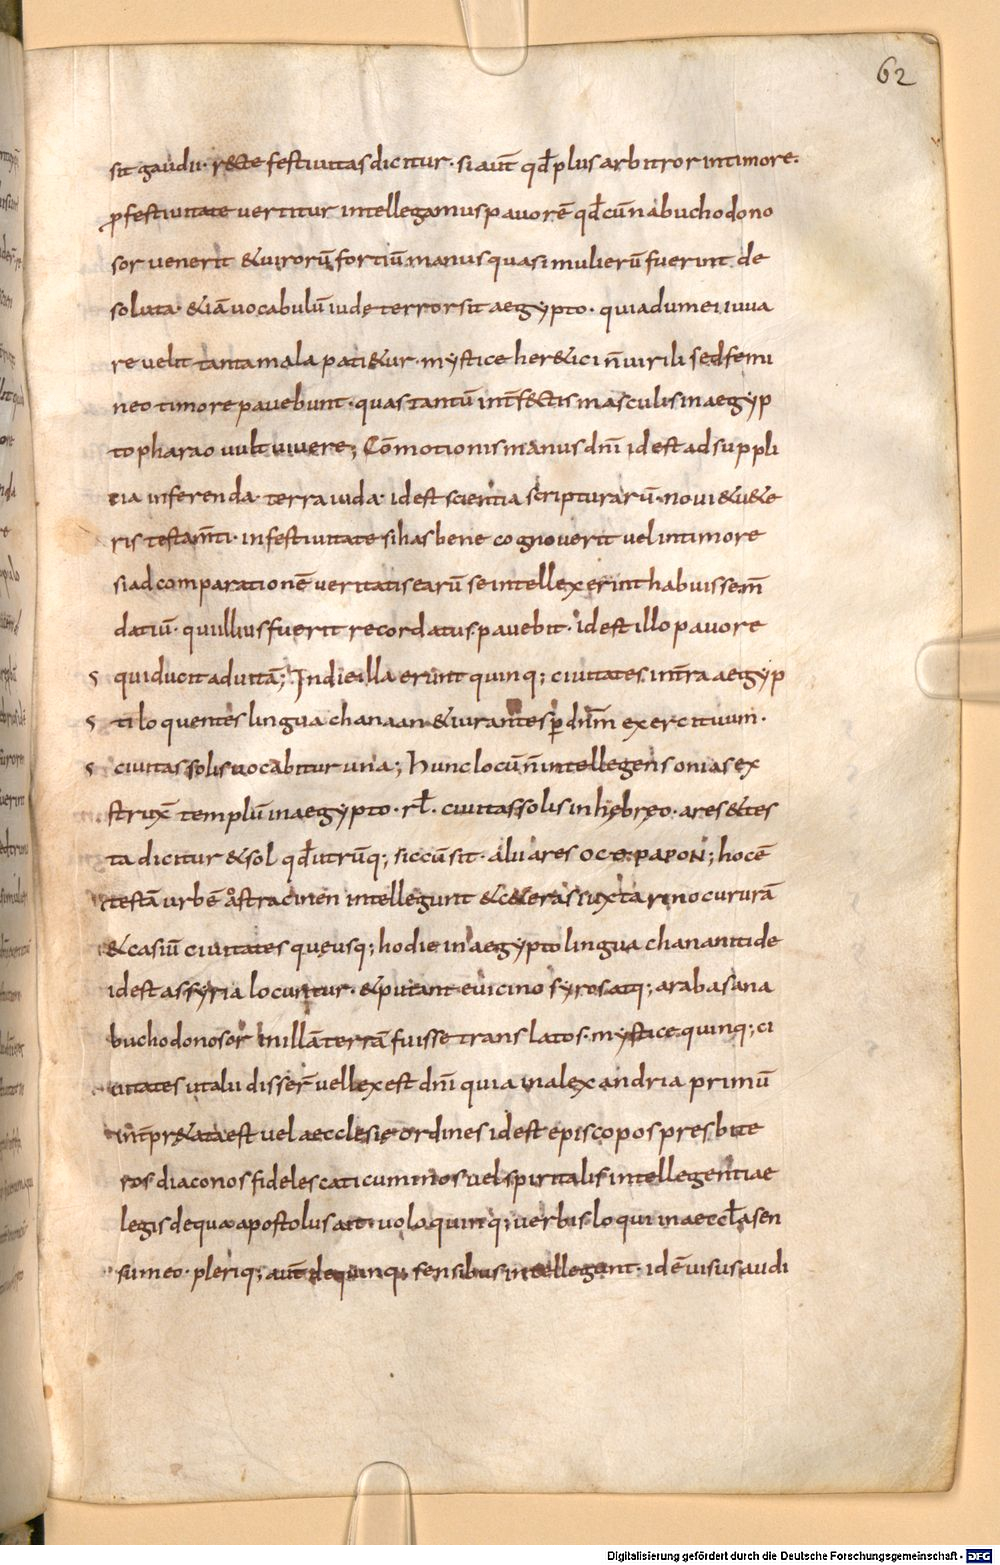 62
sit gaudii· r&te festiuitas dicitur· si aut̄ qđ plus arbitror in timore·
ꝓ festiuitate uertitur intellegamus pauorē qđ cū nabuchodono
sor uenerit &uirorū fortiū manus quasi mulierū fuerint de
soluta· &iā uocabulū iudę terror sit aegypto· quia dum ei iuua
re uelit tanta mala pati&ur· mystice her&ici n̄ uirili sed femi
neo timore pauebunt· quas tantū int̄f&ctis masculis in aegyp
to pharao uult uiuere; Cōmotionis manus dn̄i id est ad suppli
cia inferenda· terra iuda· id est scientia scripturarū· noui &u&e
ris testam̄ti· in festiuitate si has bene cognouerit uel in timore
si ad comparationē ueritatis earū se intellexerint habuisse m̄
datiū· qui illius fuerit recordatus· pauebit· id est illo pauore
s qui ducit ad uitā; In die illa erunt quinq; ciuitates in t̄ra aegyp
s ti loquentes lingua chanaan &iurantes ꝑ dn̄m exercituum·
s ciuitas solis uocabitur una; Hunc locū n̄ intellegens onias ex
strux̄ templū in aegypto· rl̄. ciuitas solis in hebręo· ares &tes
ta dicitur &sol qđ utrūq; siccū sit· alii ares ΟCΤΡΑΡΟΝ; hoc ē
testā urbē ostracinen intellegunt &c&eras iuxta rinocururā
&casiū ciuitates quę usq; hodie in aegypto lingua chananitide
id est assyria locuntur· &putant e uicino syros atq; arabas a na
buchodonosor in illā terrā fuisse translatos· mystice quinq; ci
uitates ut alii disser̄ uel lex est dn̄i quia in alexandria primū
int̄pr&ata est uel aecclesię ordines id est episcopos presbite
ros diaconos fideles caticuminos uel spiritalis intellegentiae
legis de qua apostolus ait· uolo quinq; uerbis loqui in aeccl̄a sen
su meo· pleriq; aut̄ de quinq; sensibus intellegant· id ē uisus audi
Digitalisierung gefördert durch die Deutsche Forschungsgemeinschaft - DFG